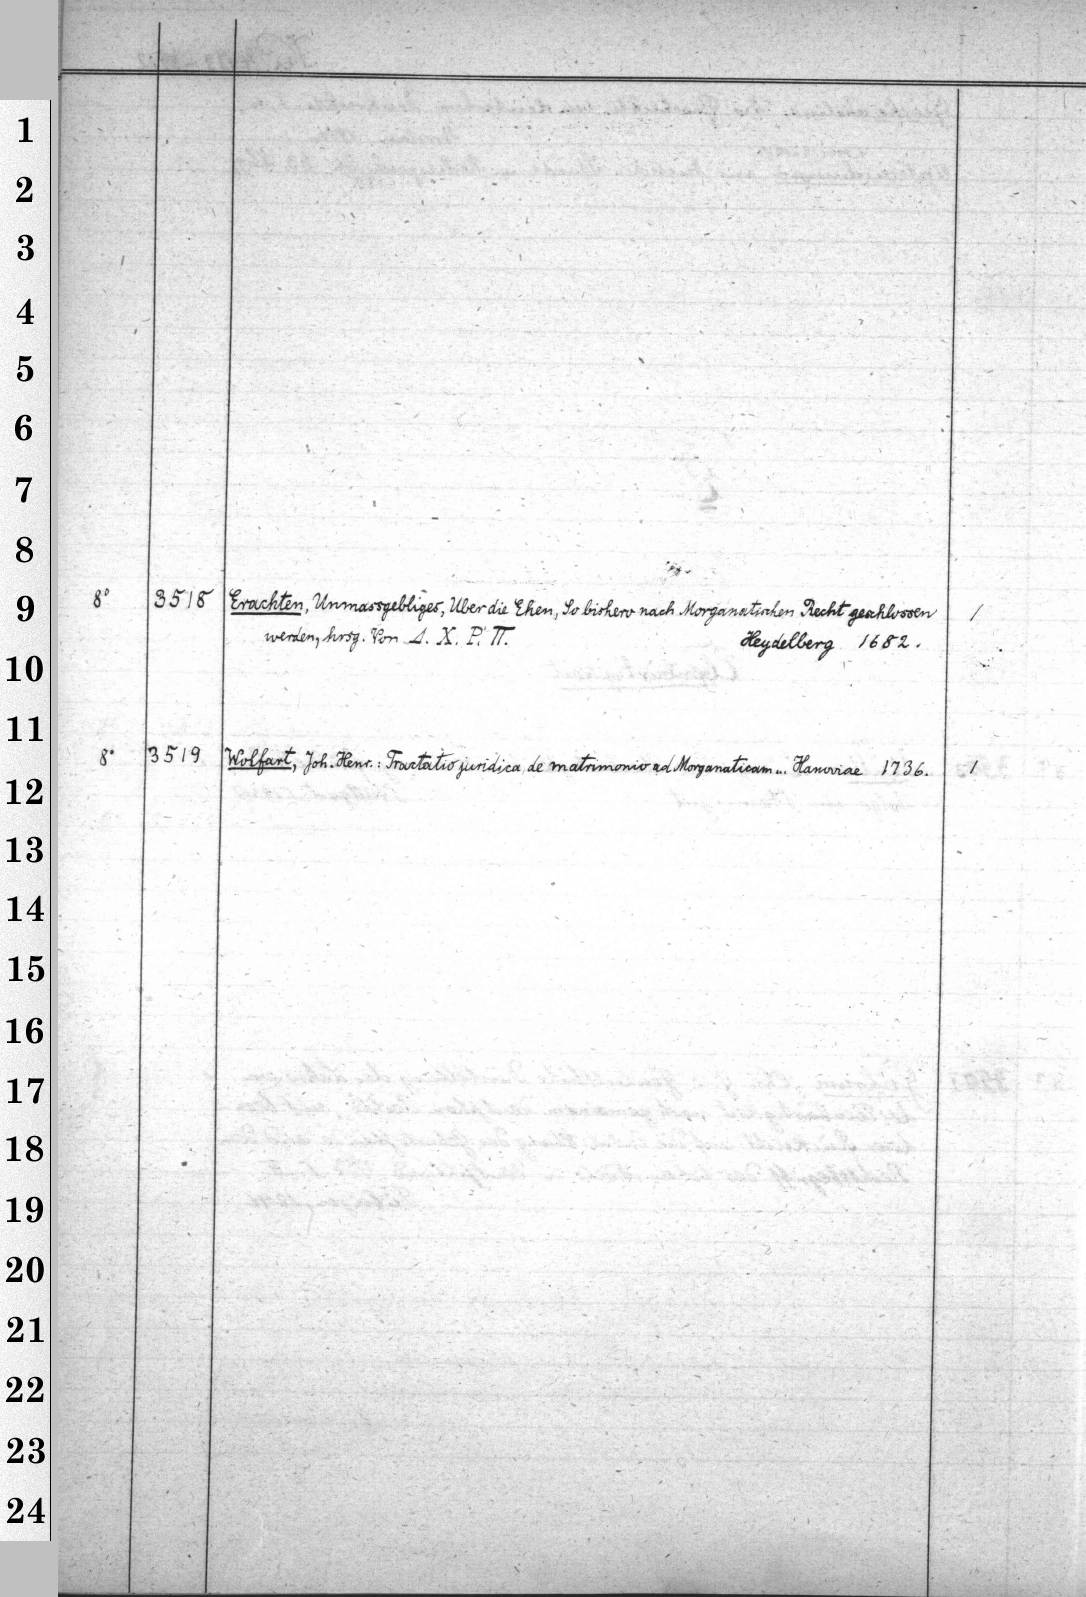 1
2
3
4
5
6
7
8
9
8° 3518 Erachten, Unmassgebliges, Uber die Ehen, So bishero nach Morganatischen Recht geschlossen 1
werden, hrsg. Von Δ. X. P. Π. Heydelberg 1682.
10
11
8° 3519 Wolfart, Joh. Henr.: Tractatio juridica de matrimonio ad Morganaticam... Hanoviae 1736. 1
12
13
14
15
16
17
18
19
20
21
22
23
24